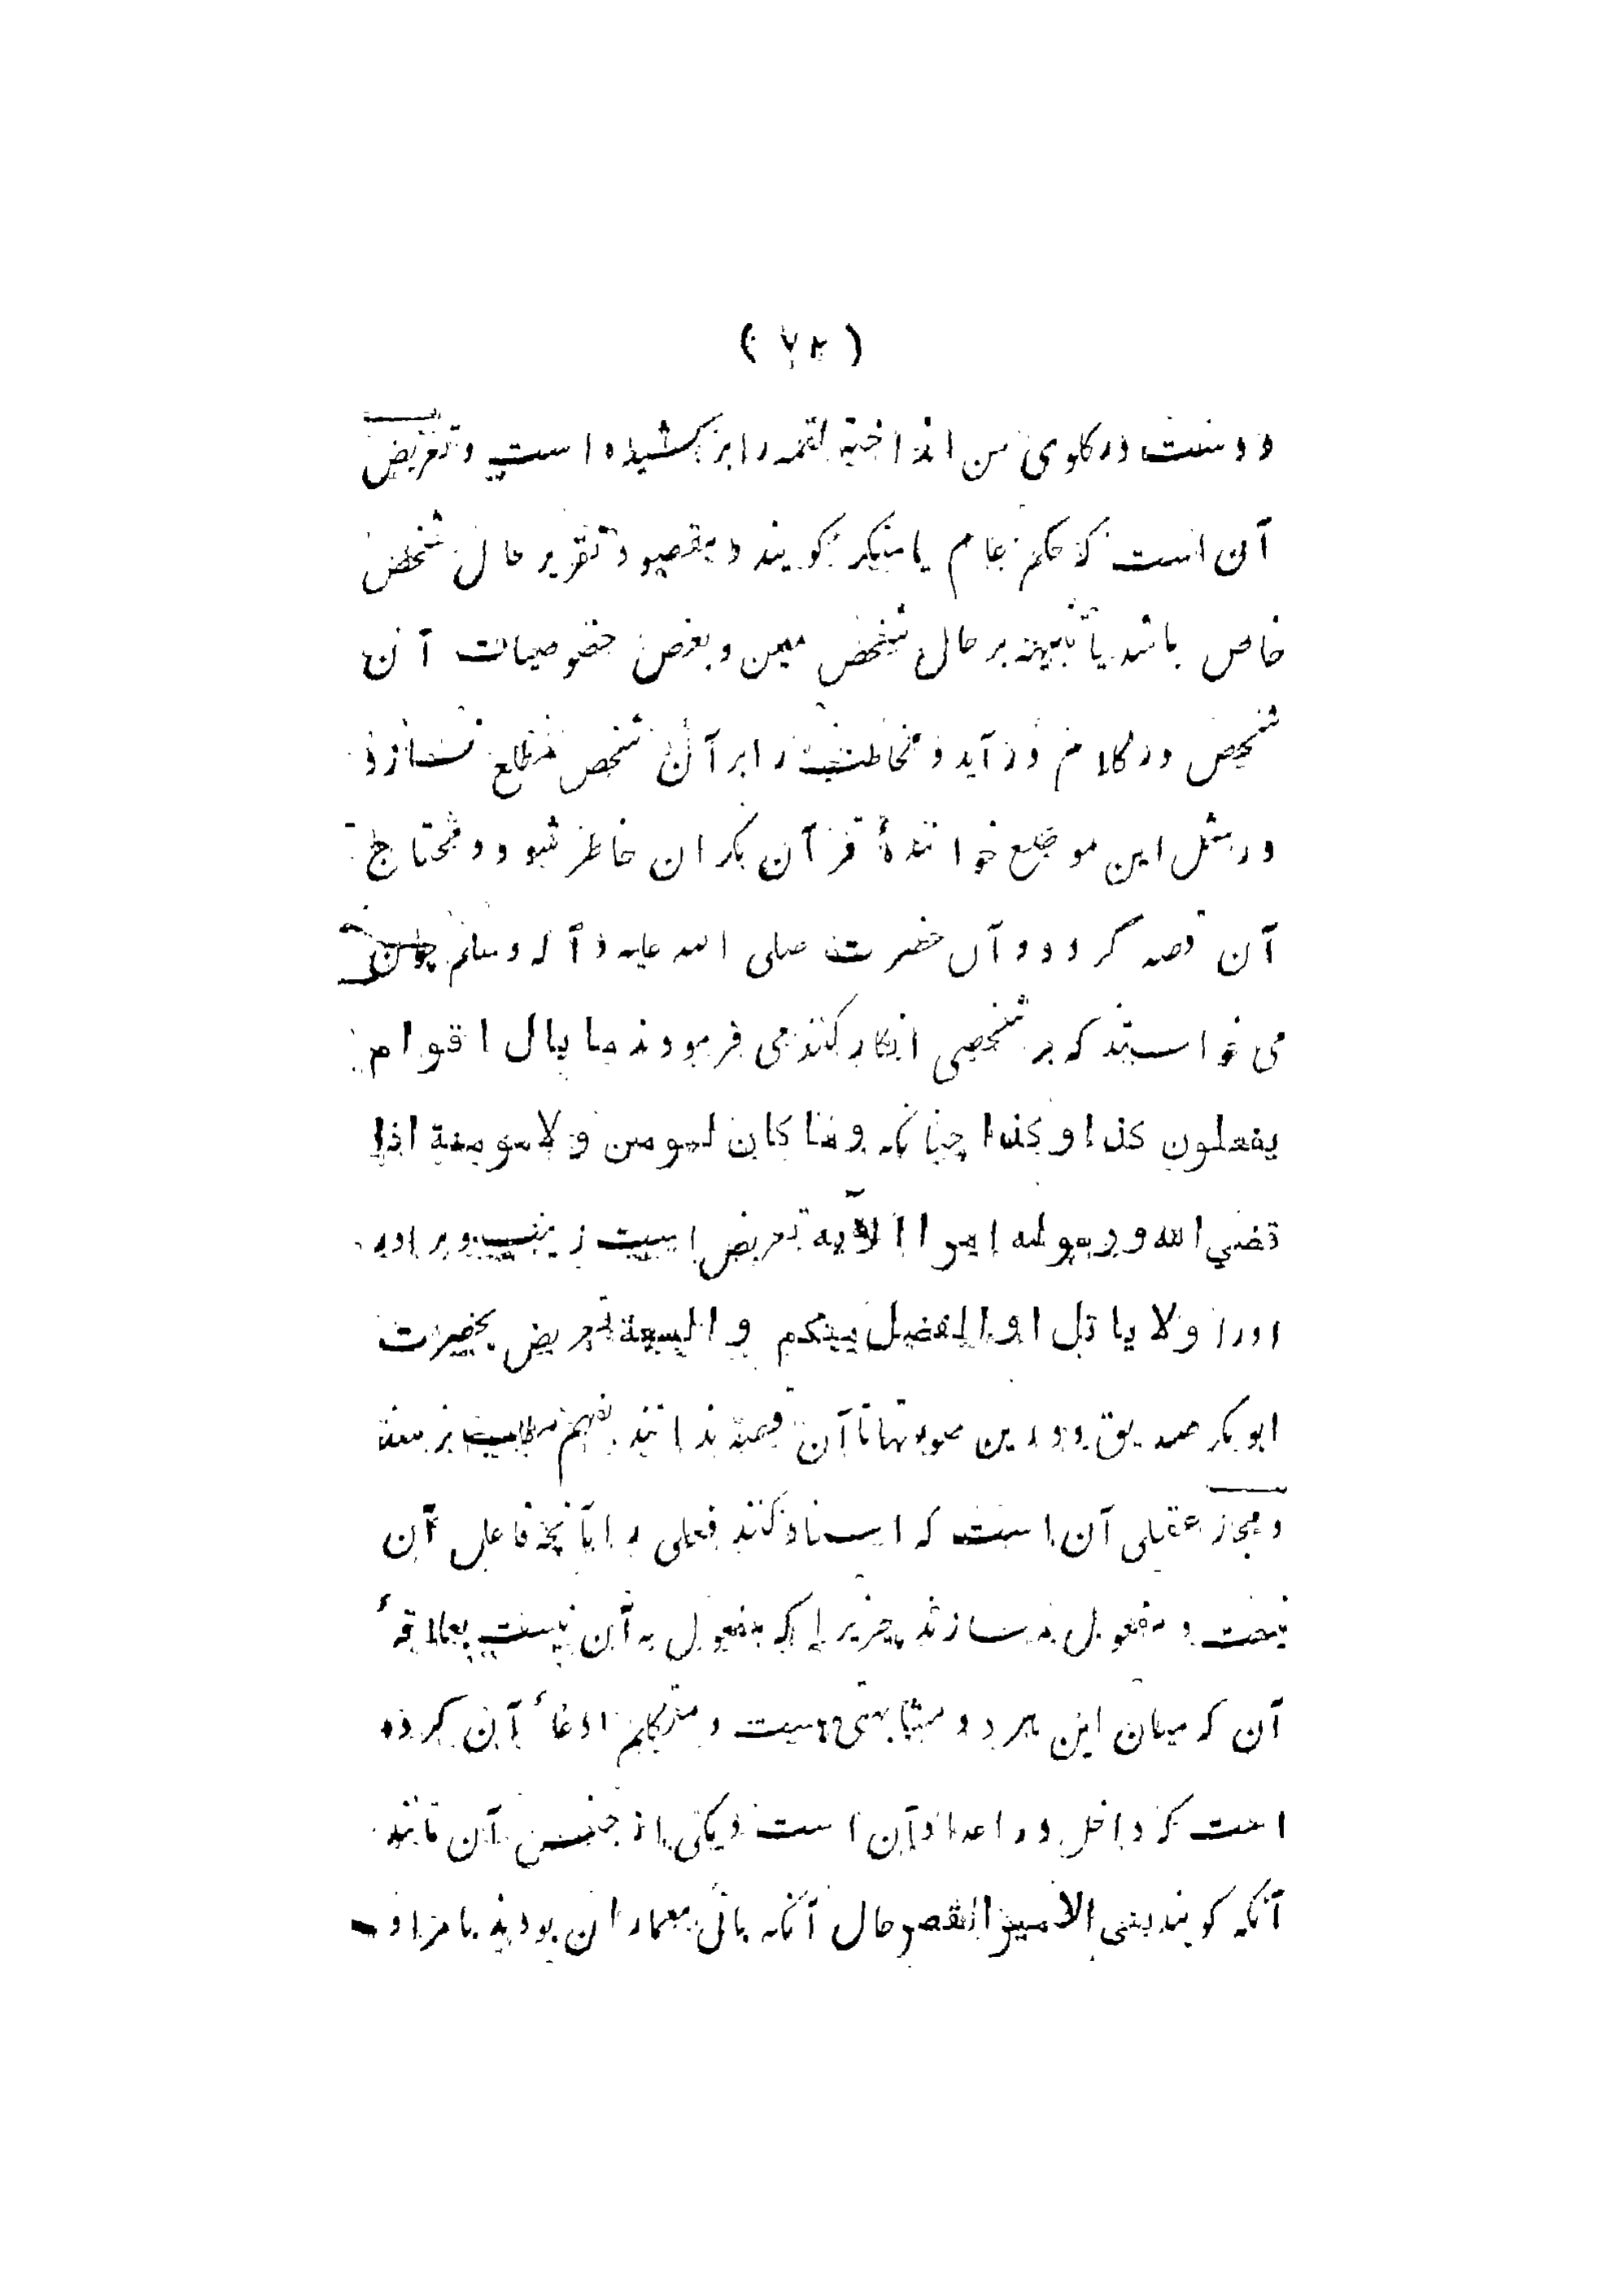 ( ۷۲ )
و دست در گلوی من انداخته لقمه را بر کشیده است و تعریض
آن است که حکم عام یا منکر گویند و مقصود تقریر حال شخص
خاص باشد یا تنبیه بر حال شخص معین و بعض خصوصیات آن
شخص در کلام در آید و مخاطب را بر آن شخص مطلع سازد
در مثل این مواضع خوانندهٔ قرآن نگران خاطر شود و محتاج
آن قصه گردد و آن حضرت صلی الله علیه و آله و سلم چون
می خواستند که بر شخصی انکار کنند می فرمودند ما بال اقوام
يفعلون كذا و كذا چنانکه وما كان لمومن ولا مومنة اذا
قضى الله ورسوله امرا الآية تعریض است زینب و برادر
اورا ولا ياتل اولو الفضل منكم والسعة تعریض بحضرت
ابو بکر صدیق و درین صورتها تا آن قصه ندانند بفهم مطلب نرسند
و مجاز عقلی آن است که اسناد کنند فعلی را بآنچه فاعل آن
نیست و مفعول به سازند چیزیرا که مفعول به آن نیست بعلاقهٔ
آن که میان این هر دو مشابهتی هست و متکلم ادعاء آن کرده
است که داخل در اعداد آن است و یکی از جنس آن مانند
آنکه گویند بنى الامير القصر حال آنکه بانی معماران بودند با مراو